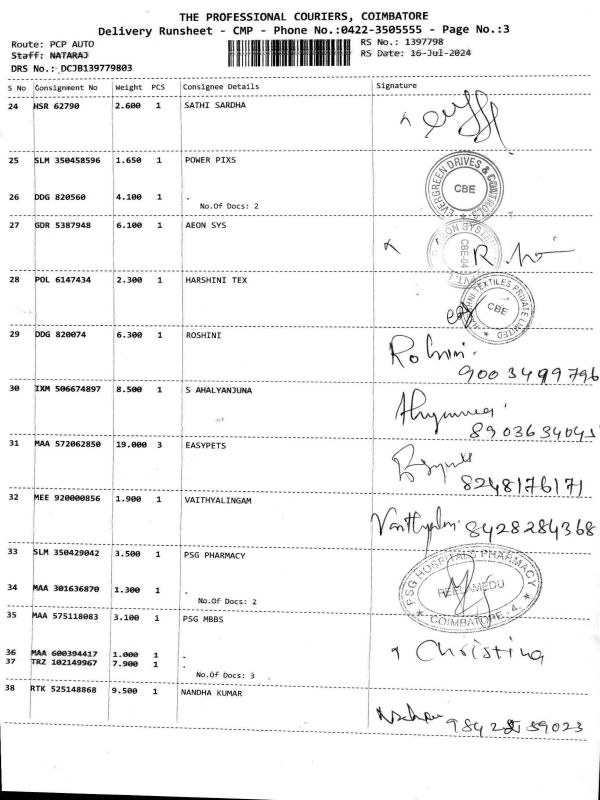 THE PROFESSIONAL COURIERS, COIMBATORE
Delivery Runsheet - CMP - Phone No.:0422-3505555 - Page No.:3
Route: PCP AUTO RS No.: 1397798
Staff: NATARAJ RS Date: 16-Jul-2024
DRS No.: DCJB139779803
S No Consignment No Weight PCS Consignee Details Signature
24 HSR 62790 2.600 1 SATHI SARDHA
25 SLM 350458596 1.650 1 POWER PIXS
EVERGREEN DRIVES & CONTROLS
CBE
26 DDG 820560 4.100 1 .
No.Of Docs: 2
27 GDR 5387948 6.100 1 AEON SYS
28 POL 6147434 2.300 1 HARSHINI TEX
TEXTILES PRIVATE LIMITED
CBE
29 DDG 820074 6.300 1 ROSHINI
Roshini.
9003499796
30 IXM 506674897 8.500 1 S AHALYANJUNA
31 MAA 572062850 19.000 3 EASYPETS
8248176171
32 MEE 920000856 1.900 1 VAITHYALINGAM
8428284368
33 SLM 350429042 3.500 1 PSG PHARMACY
PSG HOSPITALS PHARMACY
PEELAMEDU
COIMBATORE - 4.
34 MAA 301636870 1.300 1 .
No.Of Docs: 2
35 MAA 575118083 3.100 1 PSG MBBS
Christina
36 MAA 600394417 1.000 1 .
37 TRZ 102149967 7.900 1 .
No.Of Docs: 3
38 RTK 525148868 9.500 1 NANDHA KUMAR